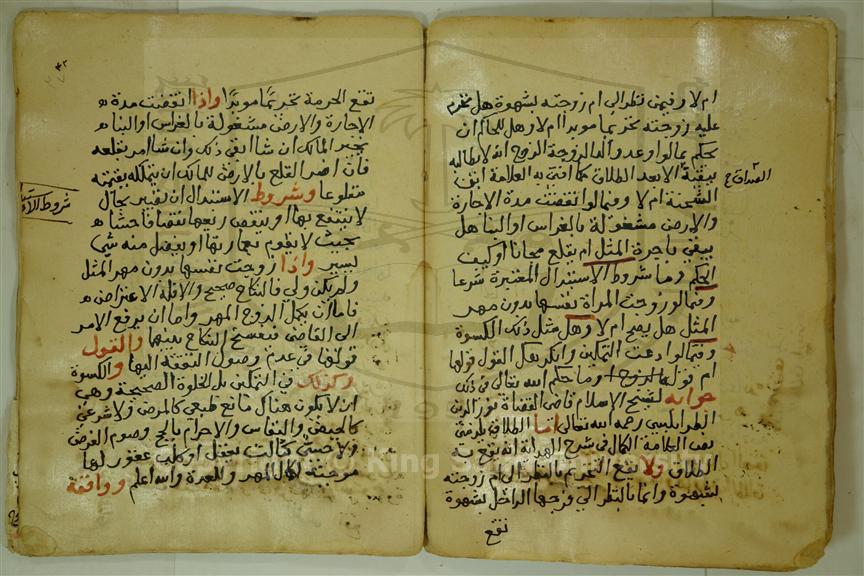 ام لا وفيمن نظر الى ام زوجته بشهوة هل تحرم
عليه زوجته تحريما موبدا ام لا وهل للحاكم ان
يحكم فيما لو وعد والد الزوجة الزوج انه لا يطالبه
ببقية الا بعد الطلاق كما افتى به العلامة ابن
الشحنة ام لا وفيما لو انقضت مدة الاجارة
والارض مشغولة بالغراس او البنا هل
يبقى باجرة المثل ام يقلع مجانا او كيف
الحكم وما شروط الاستبدال المعتبرة شرعا
وفيما لو زوجت المراة نفسها بدون مهر
المثل هل يصح ام لا وهل مثل ذلك الكسوة
وفيما لو ادعت التمكين وانكر هل القول قولها
ام قول الزوج وما حكم الله تعالى في ذلك
جوابه لشيخ الاسلام قاضي القضاة نور الدين
الطرابلسي رحمه الله تعالى اما الطلاق
نص العلامة الكمال في شرح الهداية انه يقع به
الطلاق ولا يقع التحريم بالنظر الى ام زوجته
بشهوة وانما بالنظر الى فرجها الداخل بشهوة
تقع
الصداق
تقع الحرمة تحريما موبدا واذا انقضت مدة
الاجارة والارض مشغولة بالغراس او البنا
يخير المالك ان شا ابقى ذلك وان شا امر بقلعه
فان اضر القلع بالارض للمالك ان يتملكه بقيمته
مقلوعا وشروط الاستبدال ان تصير بحال
لا ينتفع بها او ينقص ريعها نقصا فاحشا
بحيث لا يقوم بعمارتها او يفضل منه شي
يسير واذا زوجت نفسها بدون مهر المثل
ولم يكن ولي فالنكاح صحيح والا فله الاعتراض
فاما ان يكمل الزوج المهر واما ان يرفع الامر
الى القاضي فيفسخ النكاح بينهما والقول
قولها في عدم وصول النفقة اليها والكسوة
وكذلك في التمكين بل الخلوة الصحيحة وهي
ان لا يكون هناك مانع طبعي كالمرض ولا شرعي
كالحيض والنفاس والاحرام بالحج وصوم الفرض
ولا حسي كثالث يعقل او كلب عقور لها
موجبة لكمال المهر وللعدة والله اعلم ووافقه
شروط